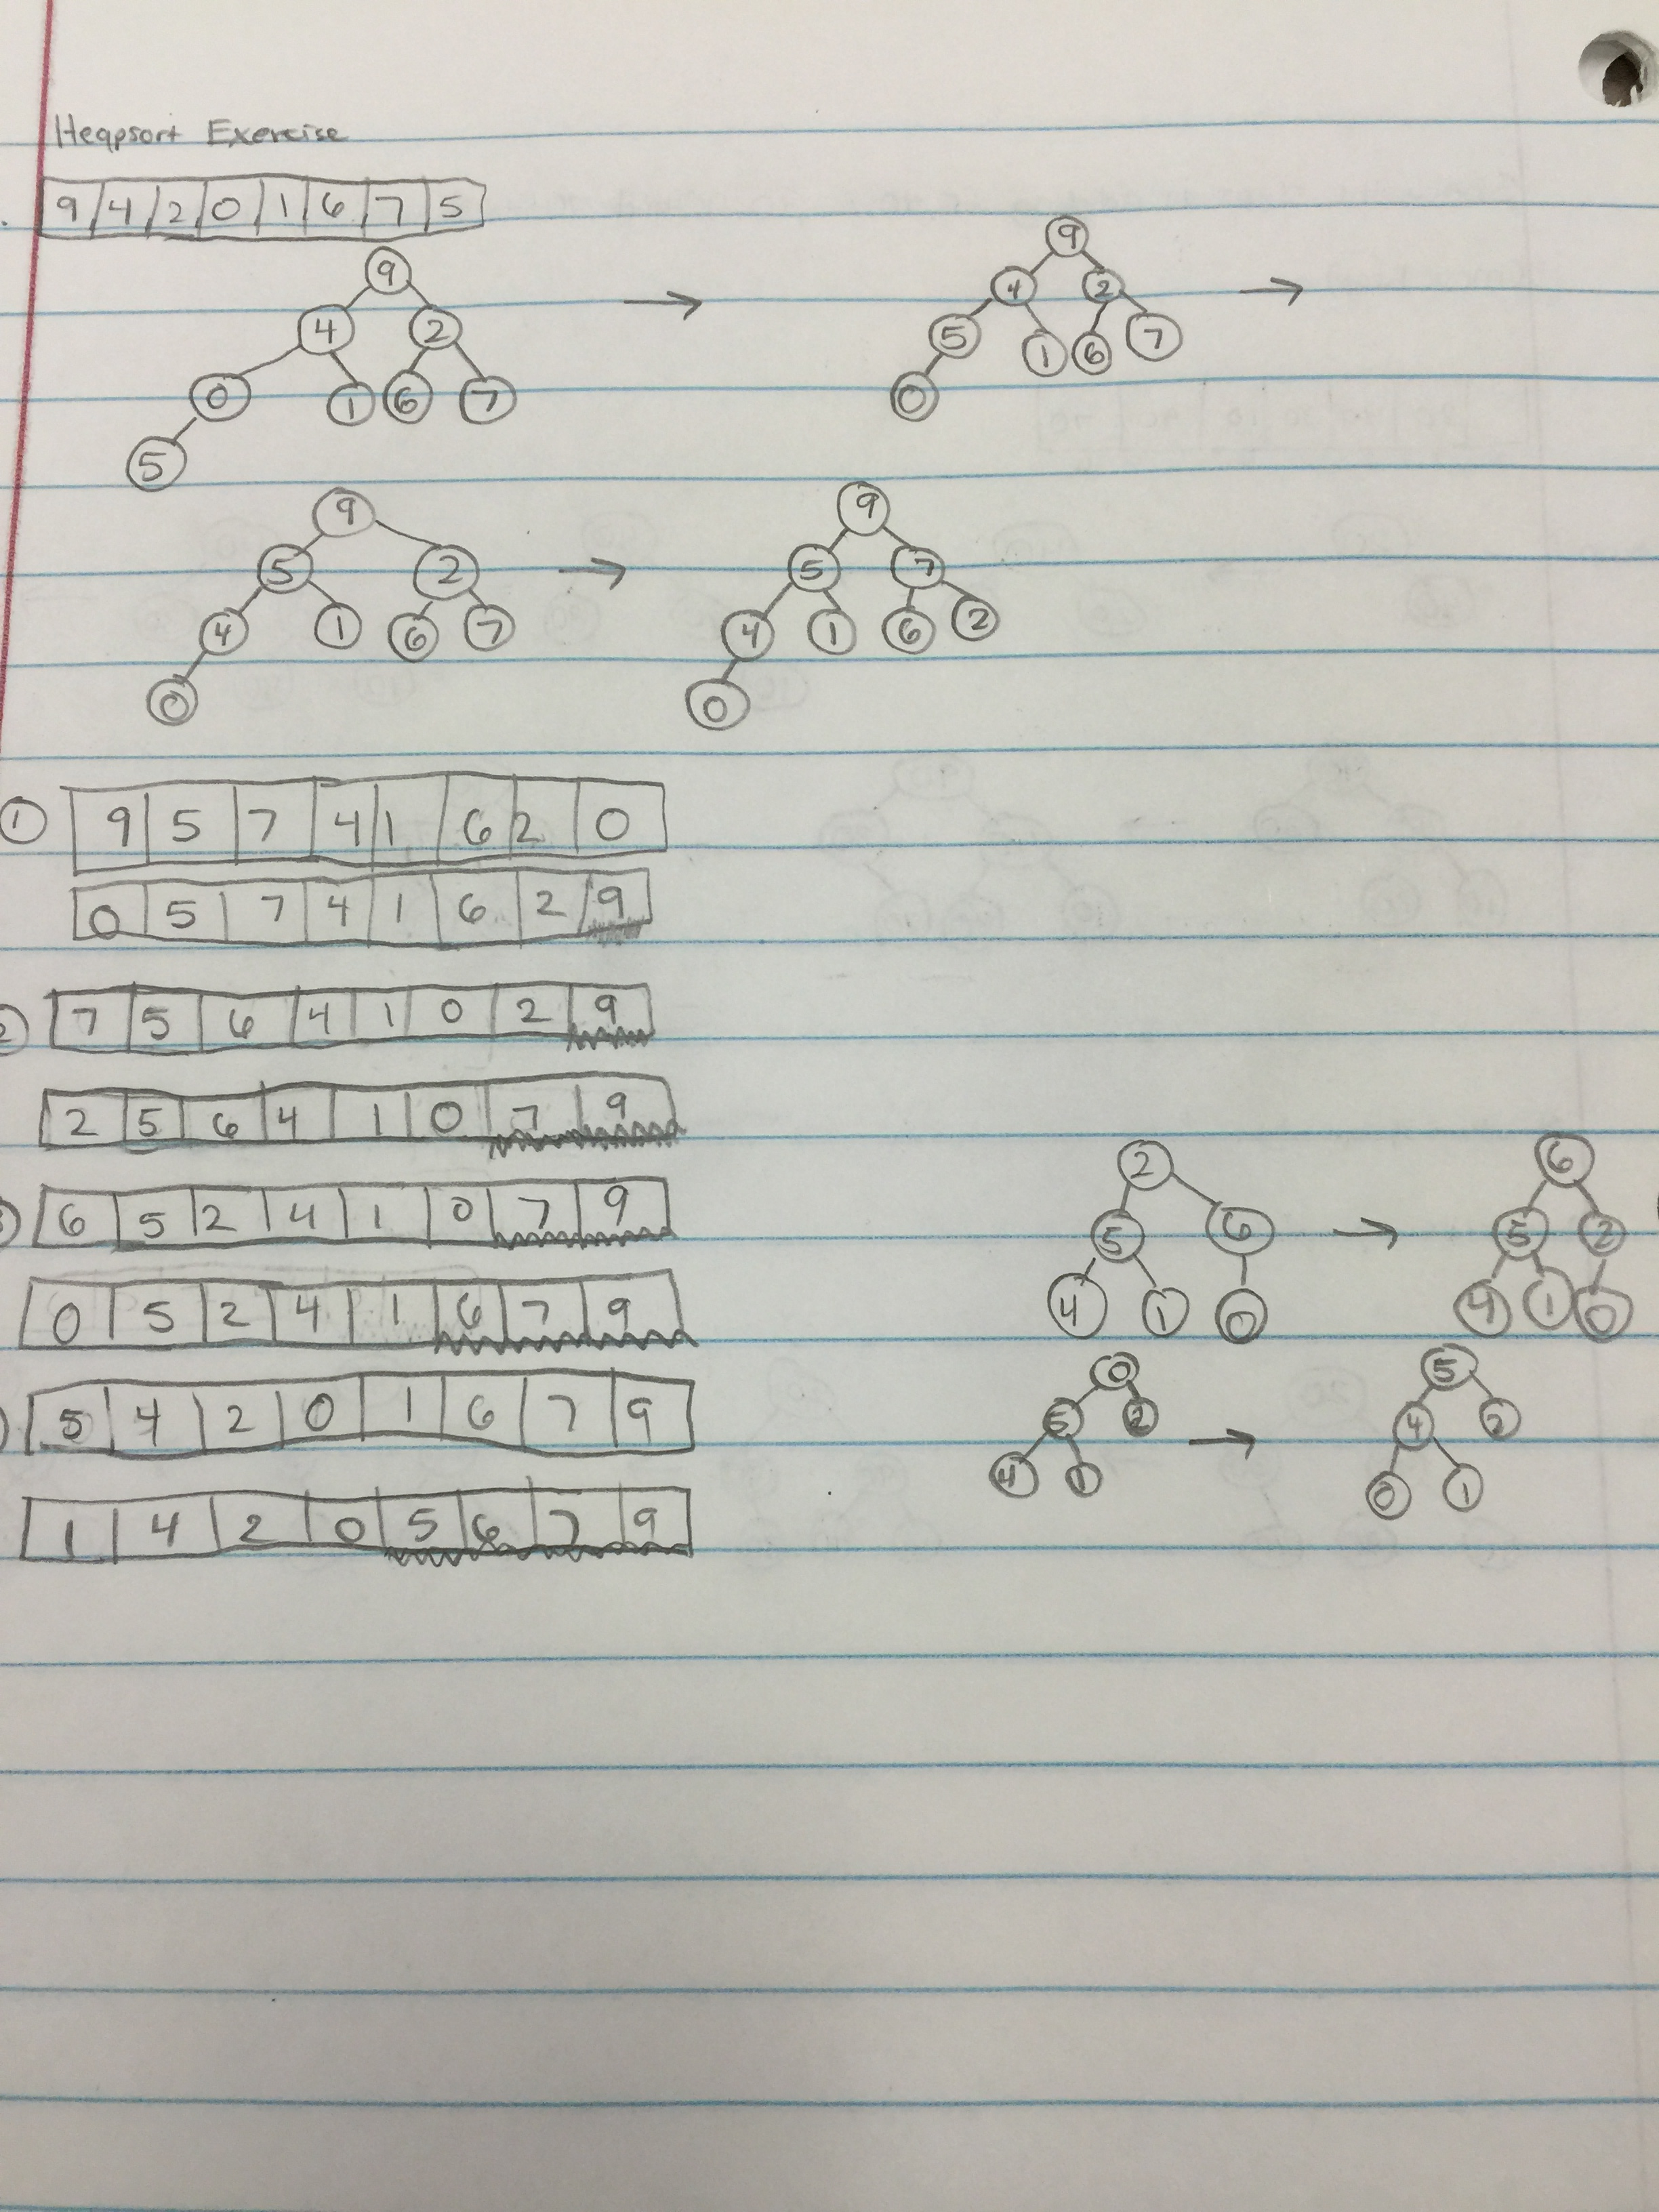 Heapsort Exercise
9 4 2 0 1 6 7 5
9 9
4 2 4 2
0 1 6 7 5 1 6 7
5 0
9 9
5 2 5 7
4 1 6 7 4 1 6 2
0 0
1 9 5 7 4 1 6 2 0
0 5 7 4 1 6 2 9
2 7 5 6 4 1 0 2 9
2 5 6 4 1 0 7 9
6 5 2 4 1 0 7 9
0 5 2 4 1 6 7 9
5 4 2 0 1 6 7 9
1 4 2 0 5 6 7 9
2 6
5 6 5 2
4 1 0 4 1 0
0 5
5 2 4 2
4 1 0 1